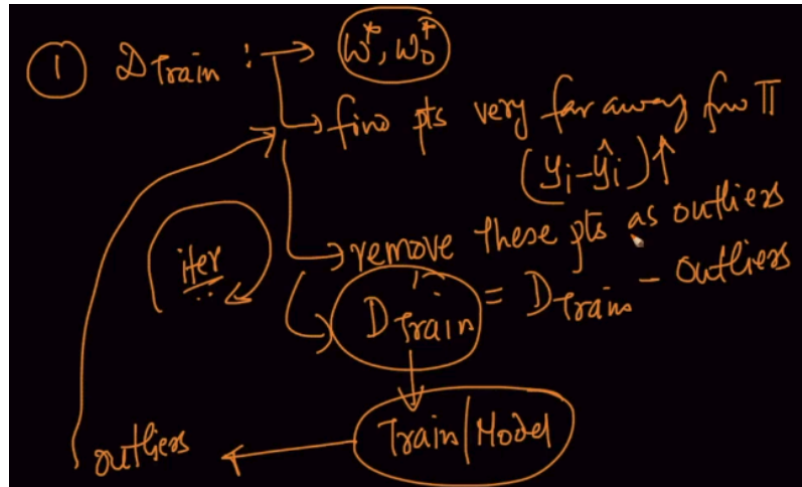 ① D Train : → w*, w₀*
→ find pts very far away from π
(yi - ŷi) ↑
→ remove these pts as outliers
iter
D'Train = DTrain - outliers
Train/Model
outliers